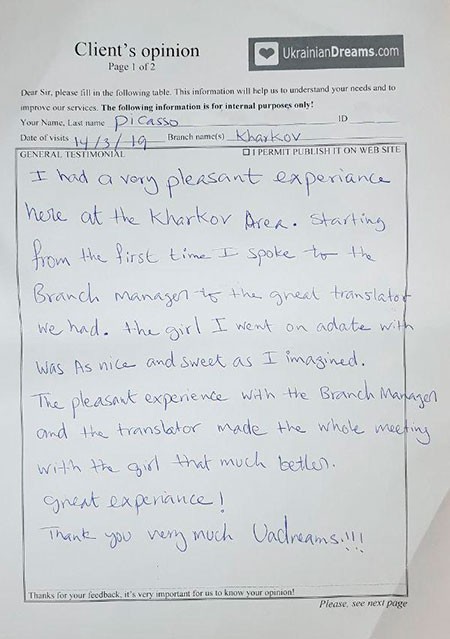 Client's opinion
Page 1 of 2
UkrainianDreams.com
Dear Sir, please fill in the following table. This information will help us to understand your needs and to
improve our services. The following information is for internal purposes only!
Your Name, Last name Picasso ID
Date of visits 14/3/19 Branch name(s) Kharkov
GENERAL TESTIMONIAL I PERMIT PUBLISH IT ON WEB SITE
I had a very pleasant experiance
here at the Kharkov Area. Starting
from the first time I spoke to the
Branch manager to the great translator
we had. the girl I went on adate with
was As nice and sweet as I imagined.
The pleasant experience with the Branch Manager
and the translator made the whole meeting
with the girl that much better.
great experiance!
Thank you very much Uadreams!!!
Thanks for your feedback, it's very important for us to know your opinion!
Please, see next page